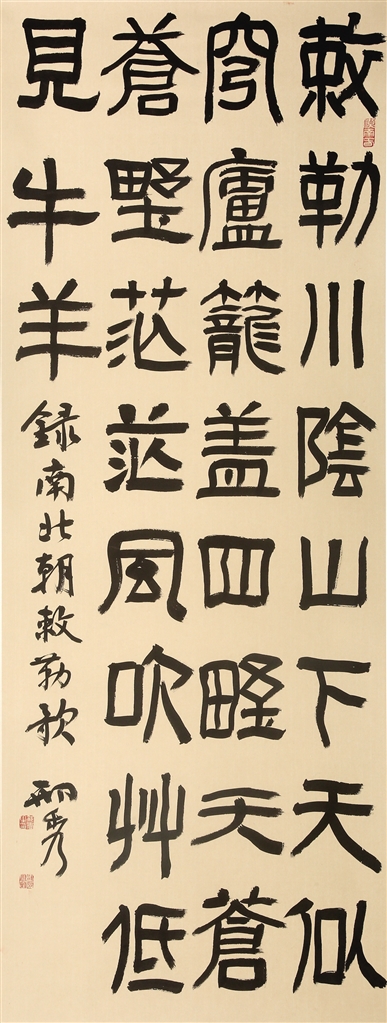 敕勒川陰山下天似
穹廬籠盖四野天蒼
蒼野茫茫風吹艸低
見牛羊
録南北朝敕勒歌